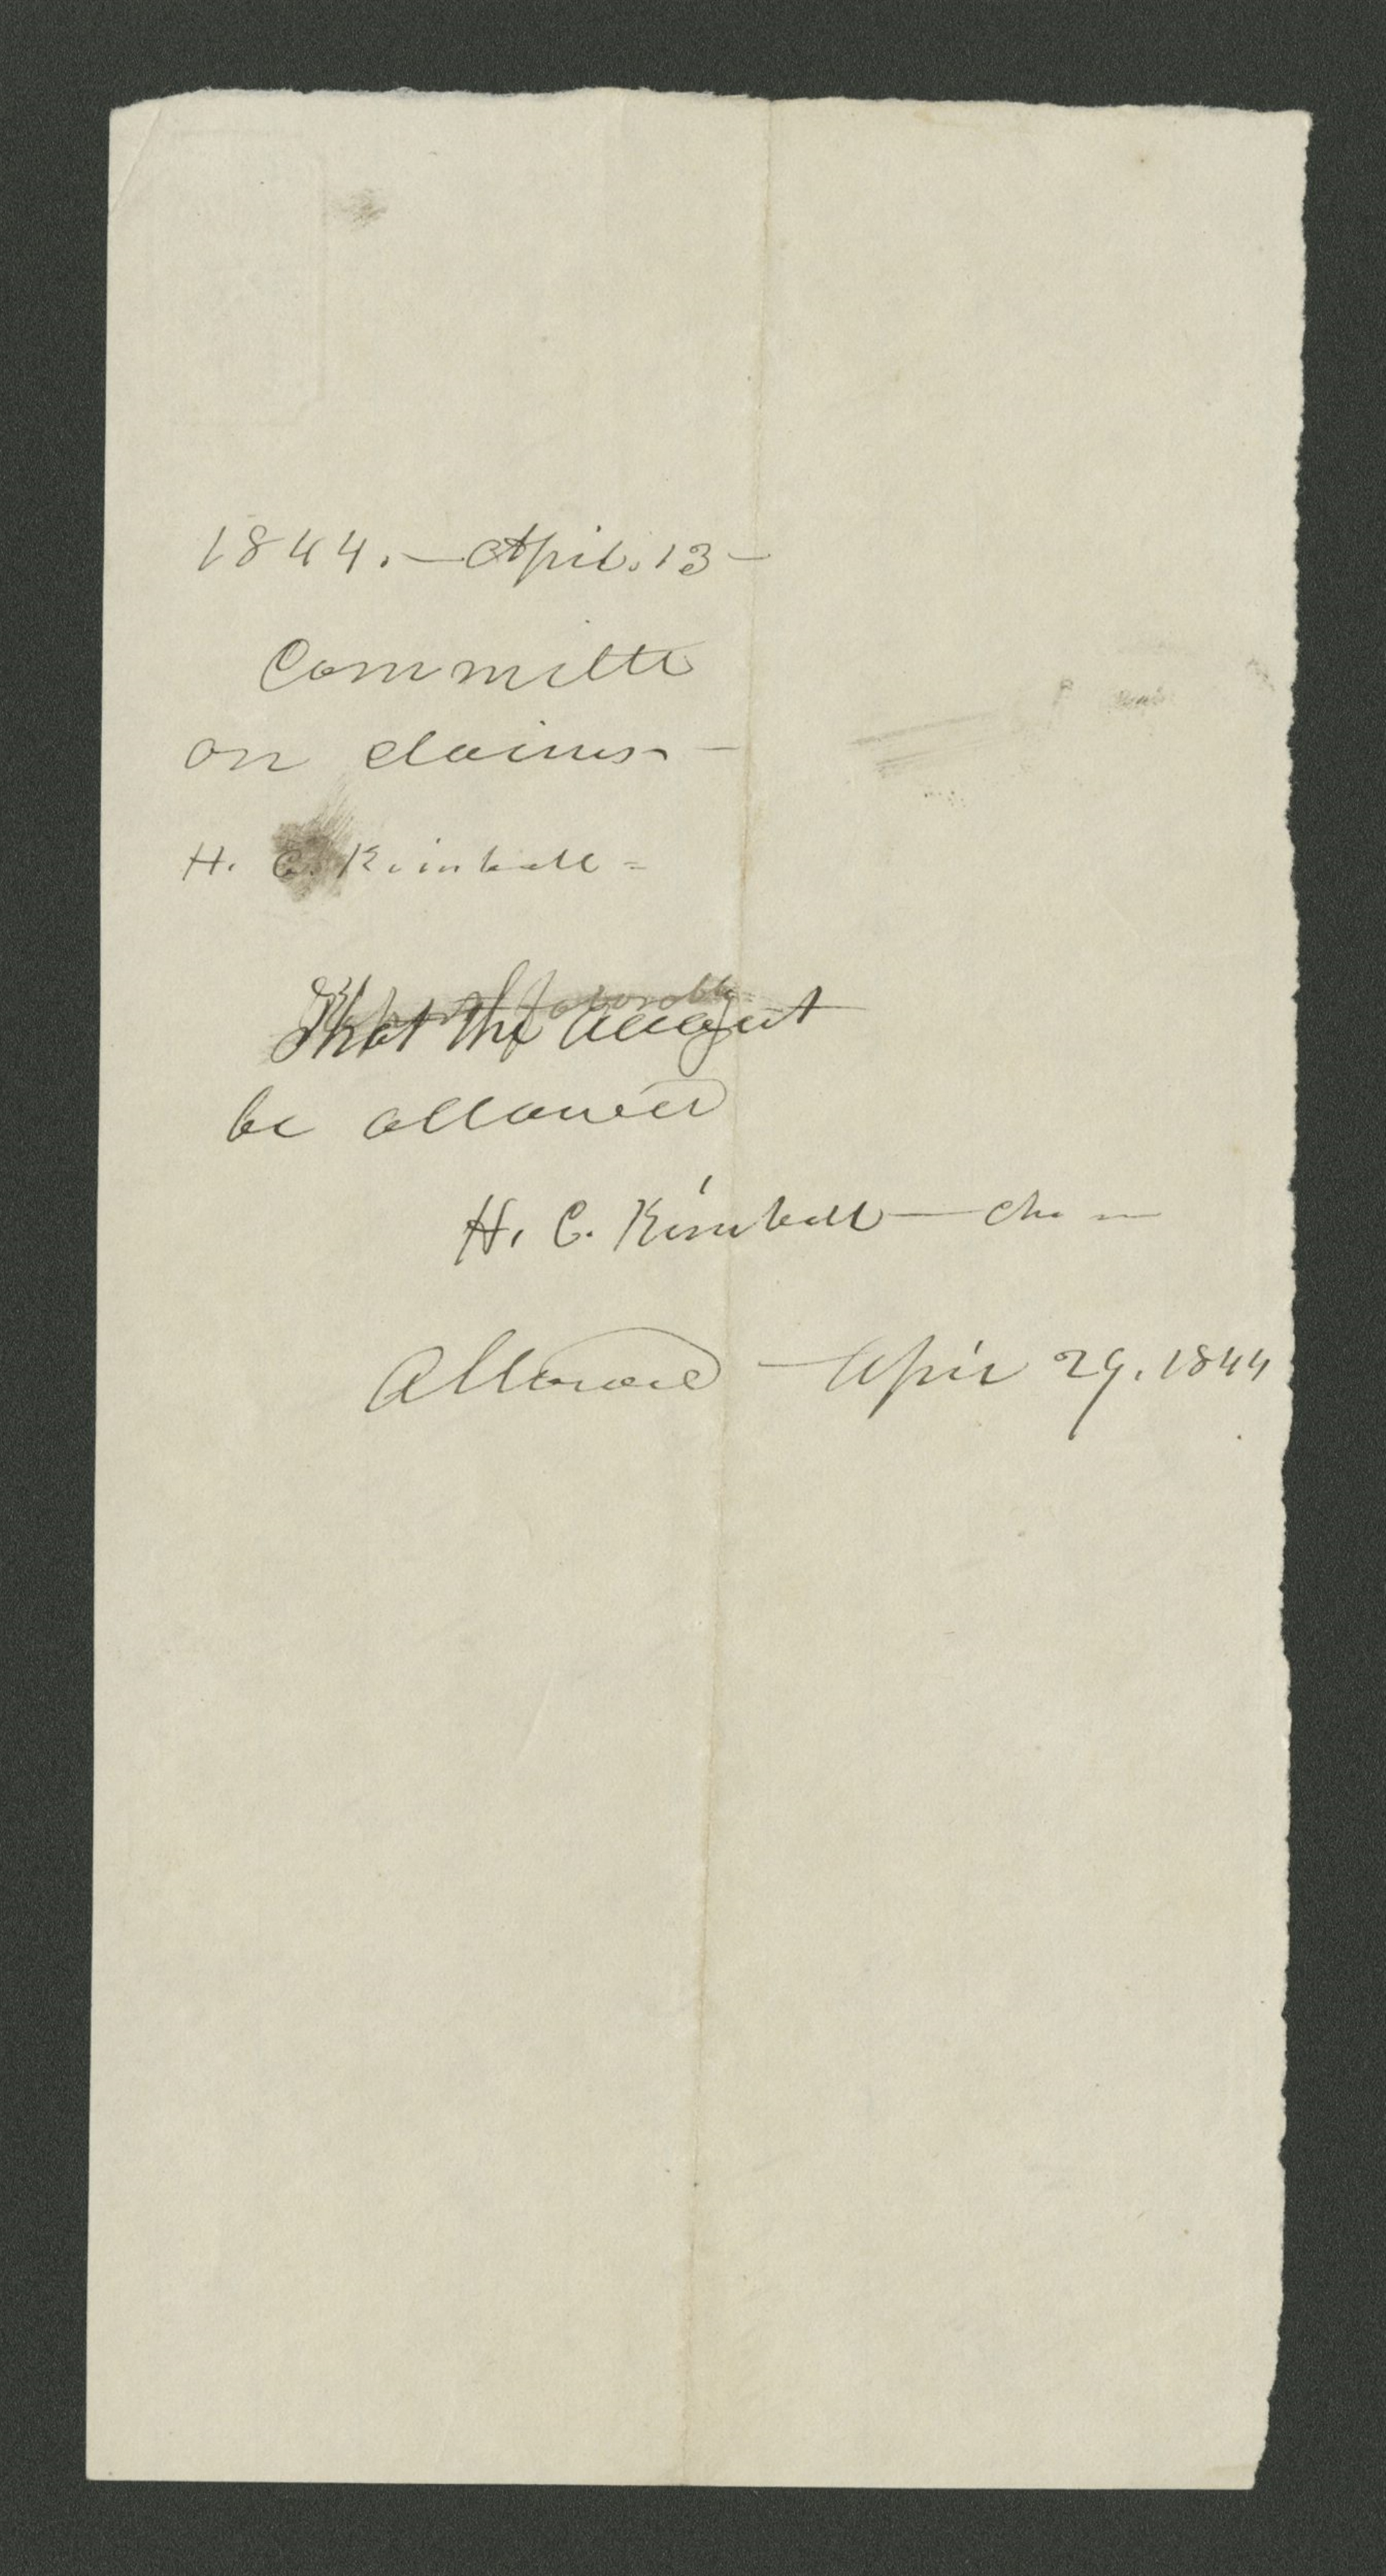 1844.— April. 13—
Committe
on claims—
H. C. Kimball =
That the account
be allowed
H. C. Kimball — Chn —
Allowed — April 29. 1844